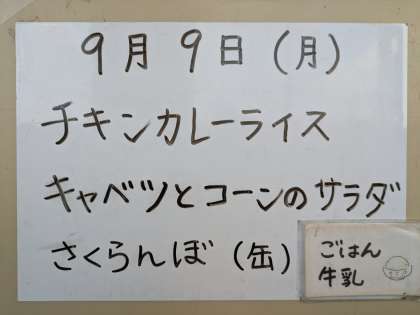 9月9日(月)
チキンカレーライス
キャベツとコーンのサラダ
さくらんぼ(缶)
ごはん
牛乳